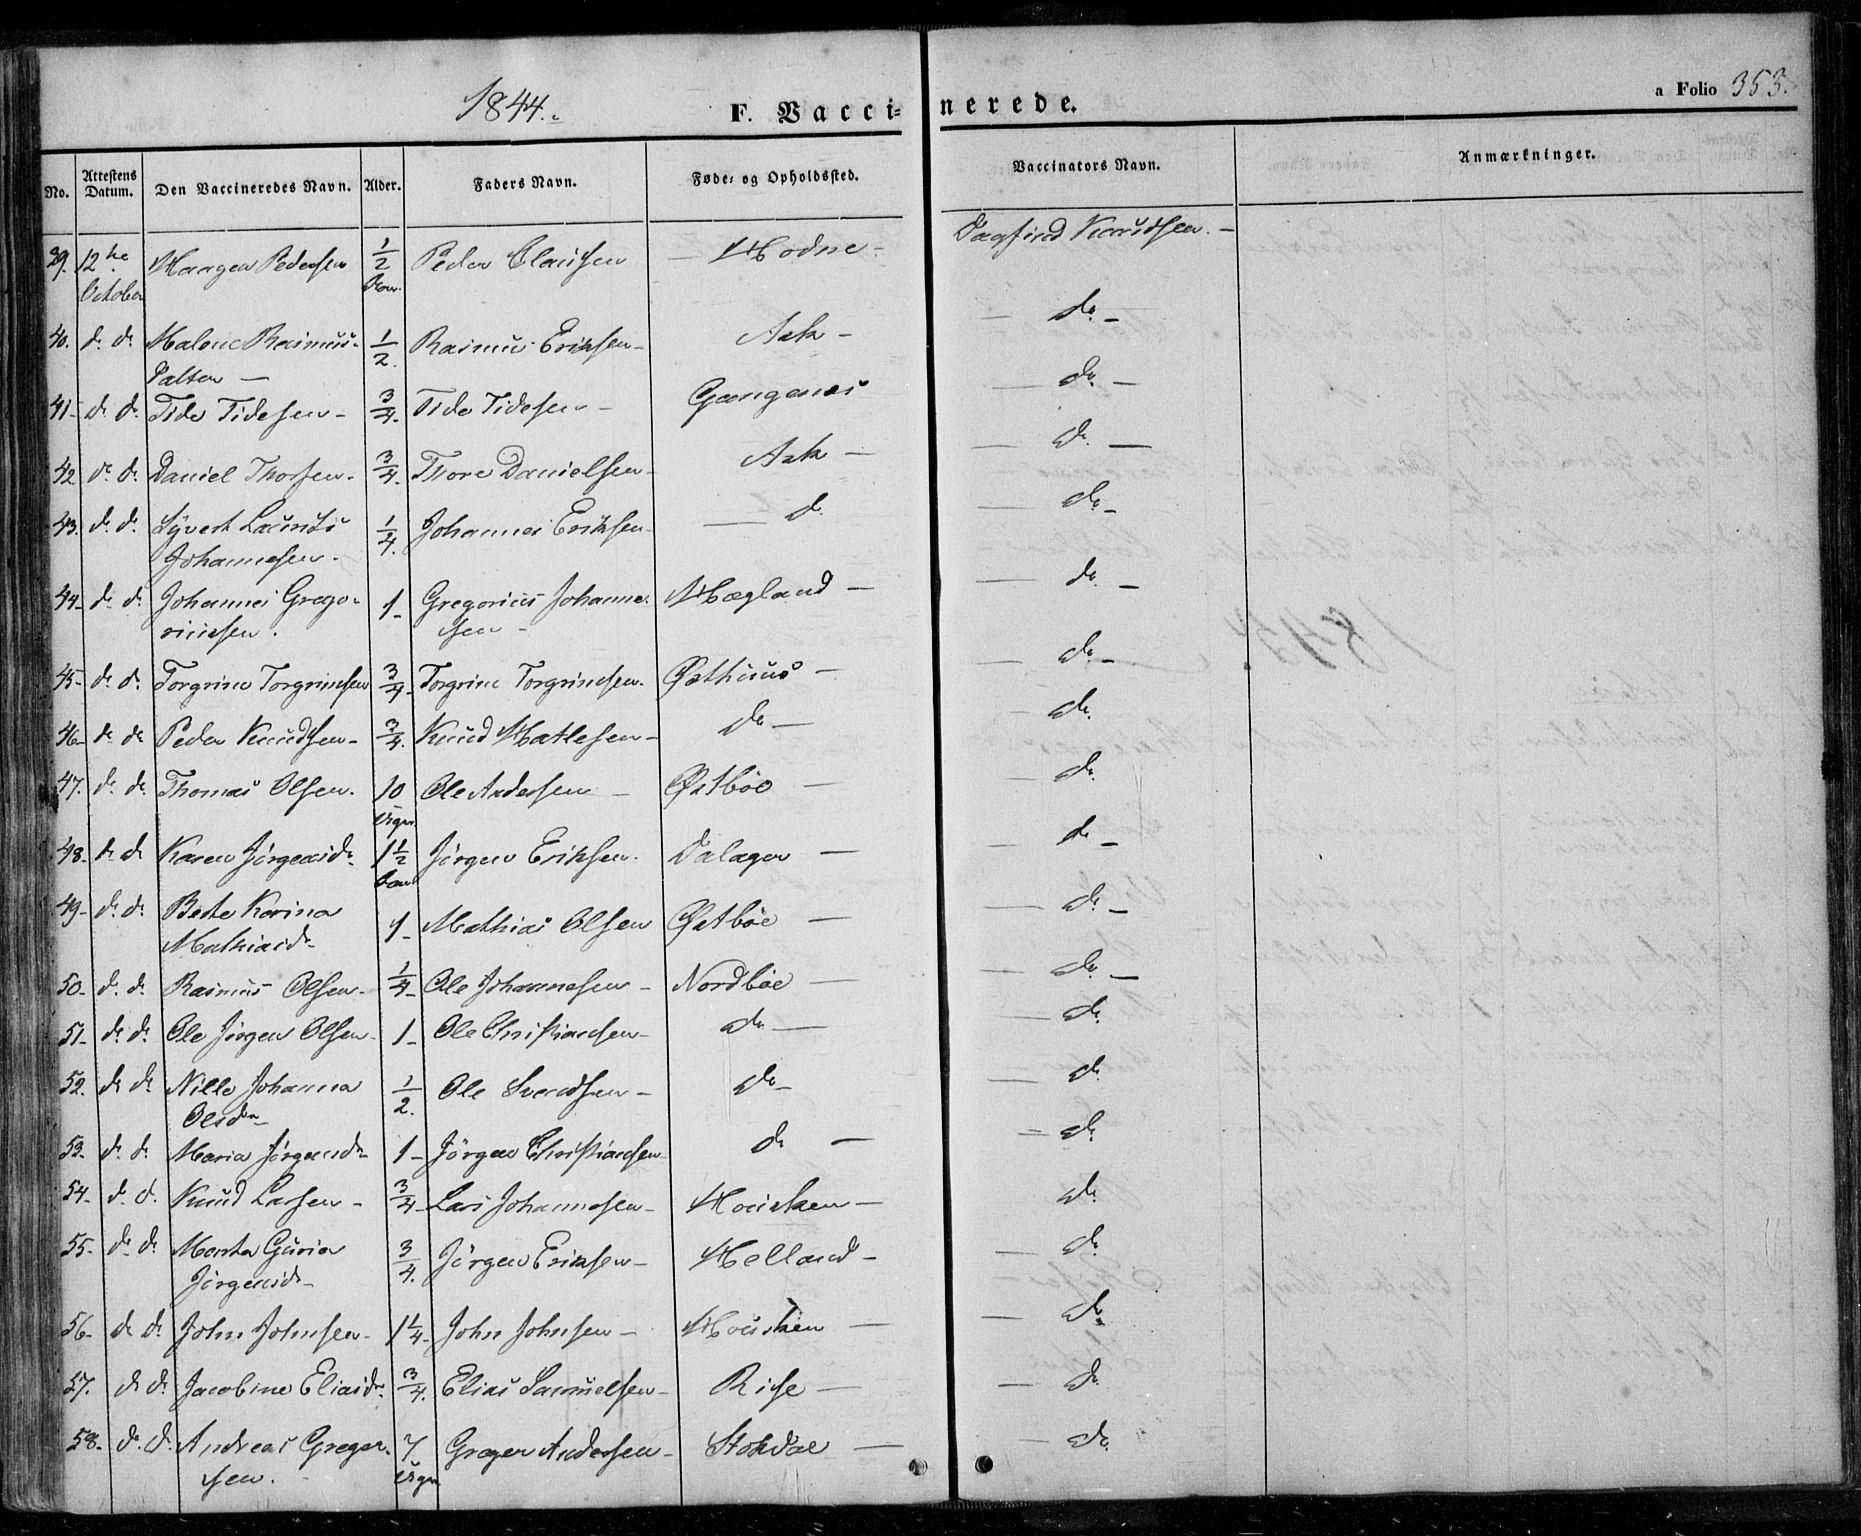 1844.
F. Vacci-
nerede.
a Folio 353.
No. Attestens Datum. Den Vaccineredes Navn. Alder. Faders Navn. Føde- og Opholdssted. Vaccinators Navn. Anmærkninger.
39. 12te October Haagen Pedersen 1/2 Peder Clausen Hodne - Dagfind Knudsen. -
40. do. do. Malene Rasmus- Datter - 1/2. Rasmus Eriksen - Ask - do. -
41- do. do. Tide Tidesen - 3/4. Tide Tidesen - Gangenes do. -
42 do. do. Daniel Thorsen. 3/4. Thore Danielsen - Ask - do. -
43. do. do. Syvert Johannesen. 1/4. Johannes Eriksen - do. do. -
44- do. do. Johannes Grego- riussen. 1- Gregorius Johanne- sen - Hægland - do. -
45- do. do. Torgrim Torgrimsen 3/4- Torgrim Torgrimsen. Østhuus - do. -
46- do. do. Peder Knudsen - 3/4. Knud Matlesen - do - do.
47. do. do. Thomas Olsen. 10 Uger Ole Andersen - Østbøe - do.
48. do do Karen Jørgensdr 1 1/2 Jørgen Eriksen. Dalager - do -
49- do. do. Berte Karina Mathiasdr 1- Mathias Olsen Østbøe - do. -
50- do. do. Rasmus Olsen - 1/4- Ole Johannesen - Nordbøe - do. -
51- do. do. Ole Jørgen Olsen - 1- Ole Christiansen - do - do.
52. do do. Nille Johanna Olsdr 1/2. Ole Svendsen - do - do.
53. do. do. Maria Jørgensdr 1- Jørgen Christiansen - do - do.
54- do. do. Knud Larsen - 3/4- Lars Johannesen - Housken - do.
55- do do. Marta Guria Jørgensdr 3/4. Jørgen Eriksen - Helland - do.
56- do do. John Johnsen - 1 1/4- John Johnsen - Housken - do.
57. do do. Jacobine Eliasdr. 3/4. Elias Samuelsen - Rise - do.
58- do. do. Andreas Greger- sen. 7 Uger Greger Andersen - Stokdal - do.